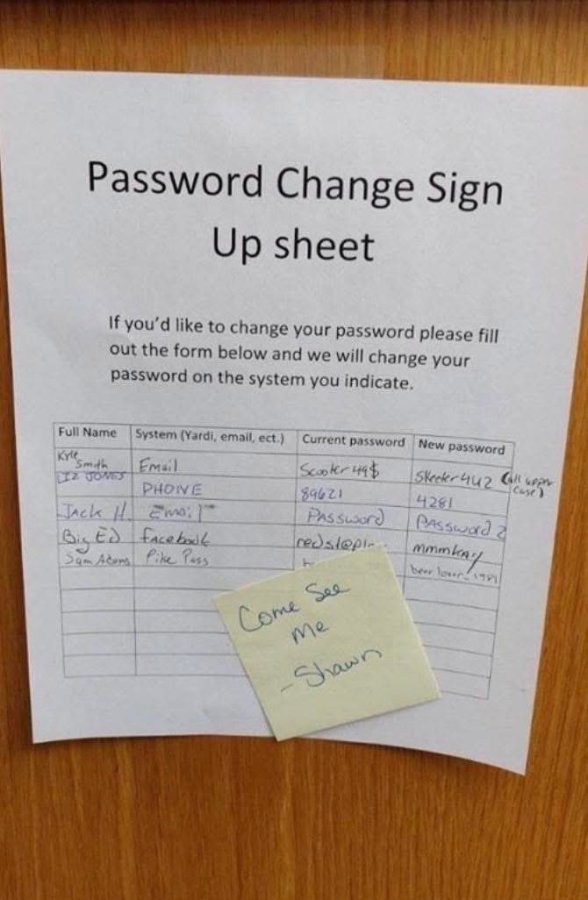 Password Change Sign
Up sheet
If you'd like to change your password please fill
out the form below and we will change your
password on the system you indicate.
Full Name System (Yardi, email, ect.) Current password New password
Kyle Smith Email Scooter49$ Skeeter4U2 (all upper case)
LIZ JONES PHONE 89621 4281
Jack H. Email PASSWORD PASSWORD 2
Big Ed facebook mmmkay
Sam Adams Pike Pass
Come See
me
- Shawn